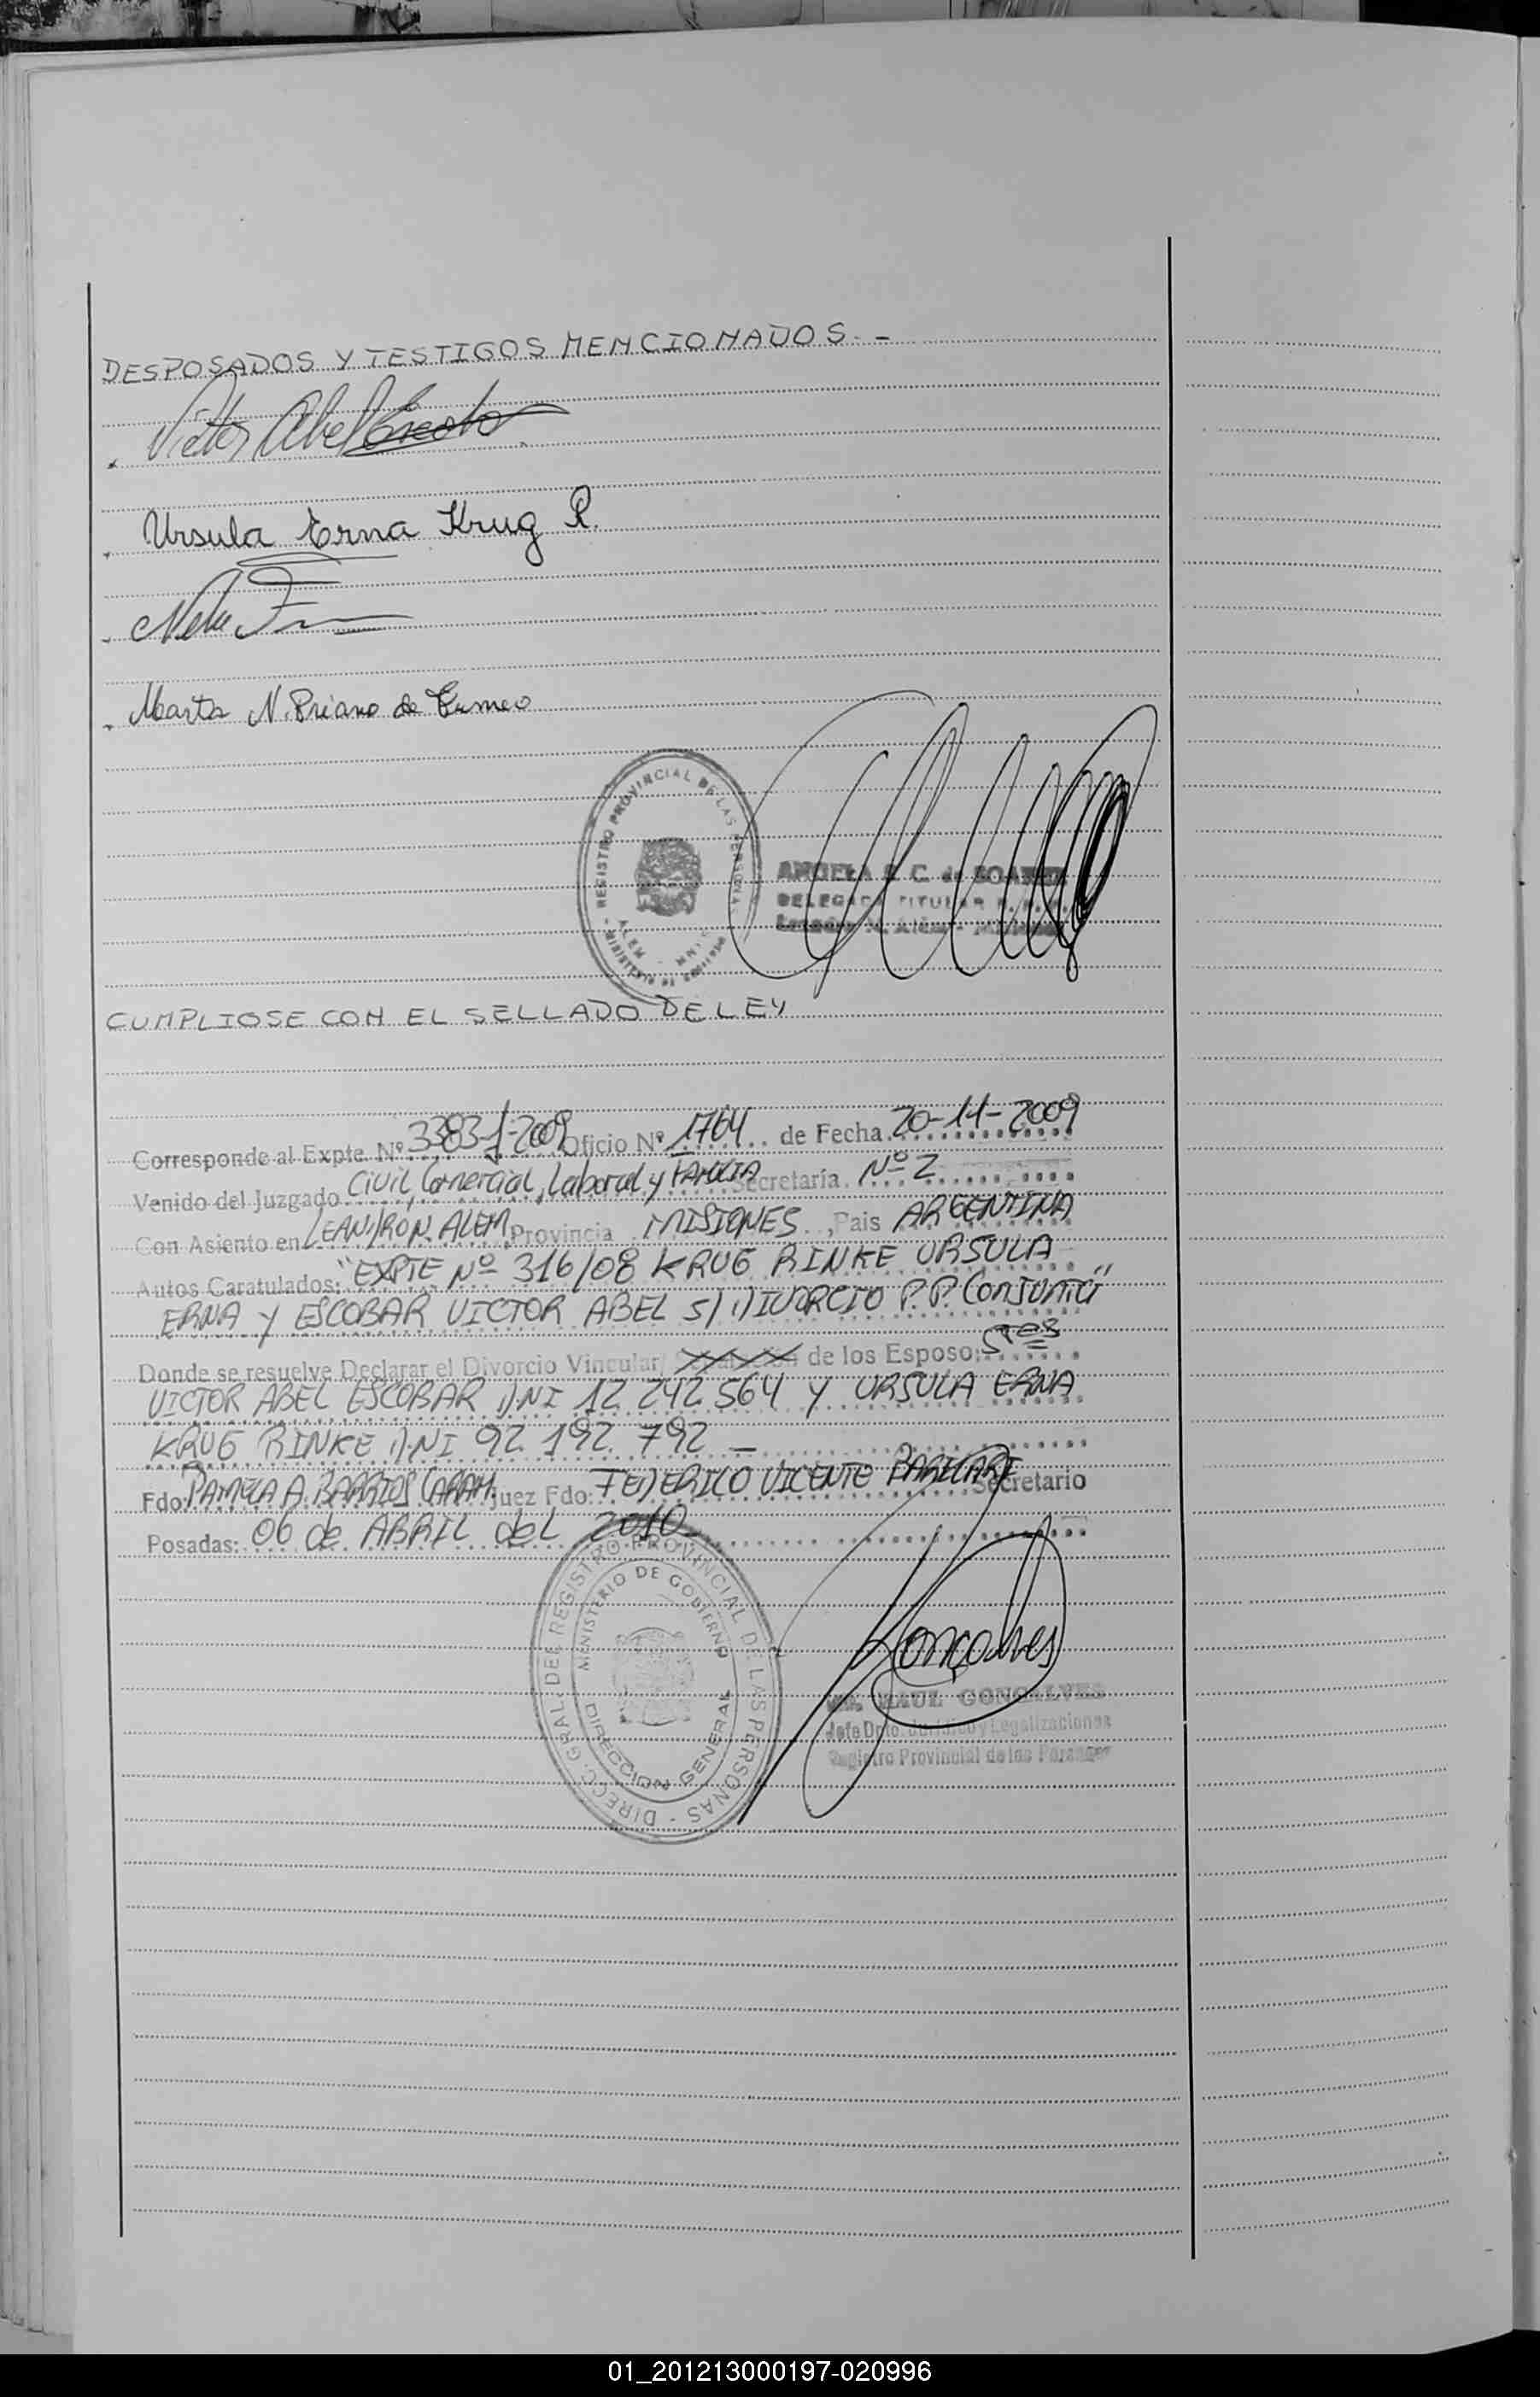 DESPOSADOS Y TESTIGOS MENCIONADOS. -
Victor Abel
Ursula Erna Krug R.
Marta N. Briano de
REGISTRO PROVINCIAL DE LAS PERSONAS
ALEM - MNES
ANGELA E. C. de
DELEGADA TITULAR R. P. P.
Leandro N. Alem - Misiones
CUMPLIOSE CON EL SELLADO DE LEY
Corresponde al Expte Nº 3383-J-2009 Oficio Nº 1764 de Fecha 20-11-2009
Venido del Juzgado Civil, Comercial, Laboral y FAMILIA Secretaría Nº 2
Con Asiento en LEANDRO N. ALEM Provincia MISIONES, Pais ARGENTINA
Autos Caratulados: "EXPTE Nº 316/08 KRUG RINKE URSULA
ERNA Y ESCOBAR VICTOR ABEL S/ DIVORCIO P.P. Conjunta"
Donde se resuelve Declarar el Divorcio Vincular de los Esposos
VICTOR ABEL ESCOBAR DNI 12.242.564 Y URSULA ERNA
KRUG RINKE DNI 92.192.792 -
Fdo: PAMELA A. BARRIOS CARAM. Juez Fdo: FEDERICO VICENTE Secretario
Posadas: 06 de ABRIL del 2010
DIRECC. GRAL. DEL REGISTRO PROVINCIAL DE LAS PERSONAS -
MINISTERIO DE GOBIERNO
DIRECCION GENERAL
Gonçalves
RAUL GONCALVES
Jefe Dpto. Jurídico y Legalizaciones
Registro Provincial de las Personas
01_201213000197-020996